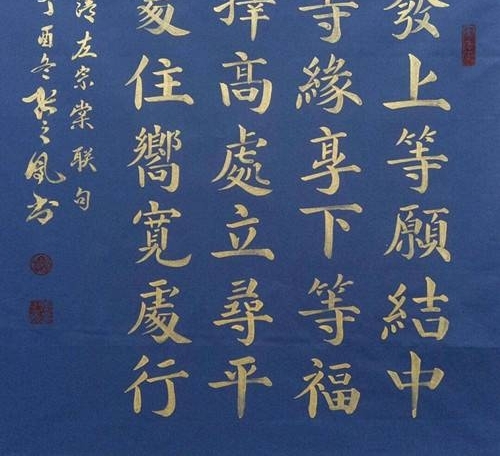 發上等願結中
等緣享下等福
擇高處立尋平
處住嚮寬處行
清左宗棠联句
丁酉冬张之凤书